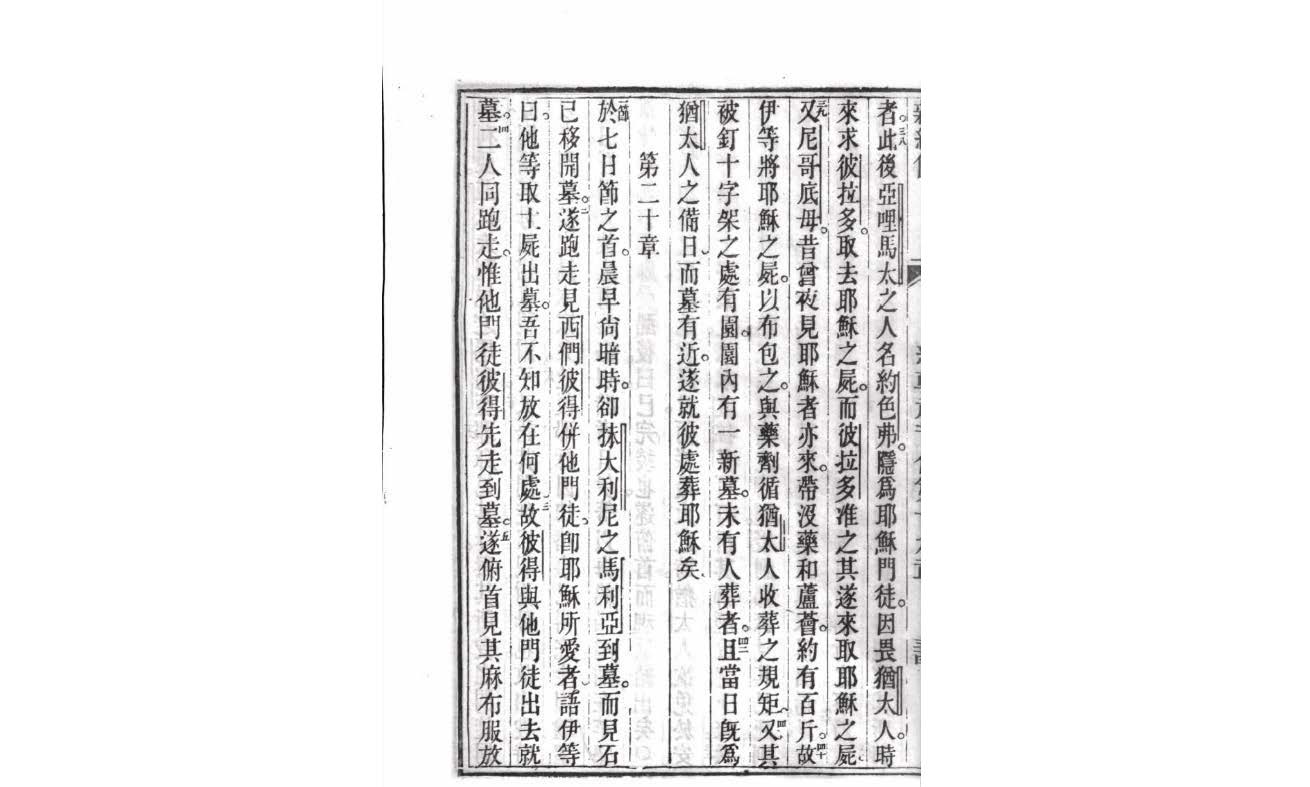 者。三八此後亞哩馬太之人名約色弗。隱爲耶穌門徒。因畏猶太人。時
來求彼拉多。取去耶穌之屍。而彼拉多准之其遂來取耶穌之屍
三九又尼哥底母。昔曾夜見耶穌者亦來。帶沒藥和蘆薈。約有百斤。四十故
伊等將耶穌之屍。以布包之。與藥劑循猶太人收葬之規矩、四一又其
被釘十字架之處有園。園內有一新墓。未有人葬者。四二且當日旣爲
猶太人之備日、而墓有近。遂就彼處葬耶穌矣、
第二十章
一節於七日節之首。晨早尙暗時。卻抹大利尼之馬利亞到墓。而見石
已移開墓。二遂跑走見西們彼得併他門徒。卽耶穌所愛者、語伊等
曰。他等取主屍出墓。吾不知放在何處、三故彼得與他門徒出去就
墓。四二人同跑走。惟他門徒彼得先走到墓。五遂俯首見其麻布服放